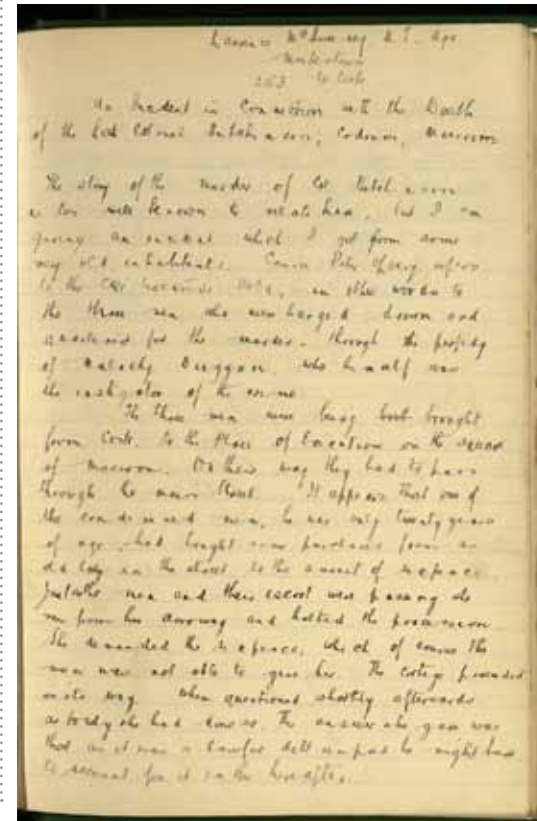 N.T.
Co Cork
An Incident in Connection with the Death
of the late Colonel Hutchinson, Codrum, Macroom
The story of the murder of Col Hutchinson
is too well known to relate here, but I am
giving an incident which I got from some
very old inhabitants. Canon Peter O'Leary refers
to the in other words to
the three men who were hanged drawn and
quartered for the murder, through the perfidy
of Malachy Duggan, who himself was
the instigator of the crime.
The three men were being brought
from Cork to the Place of Execution on the square
of Macroom. On their way they had to pass
through the main street. It appears that one of
the condemned men, he was only twenty years
of age, had bought some purchases from an
old lady in the street to the amount of sixpence.
Just as the men and their escort were passing she
ran from her doorway and halted the procession.
She demanded the sixpence, which of course the
man was not able to give her. The cortege proceeded
on its way. When questioned shortly afterwards
as to why she had done so. The answer she gave was
that as it was a lawful debt unpaid he might have
to account for it in the hereafter.